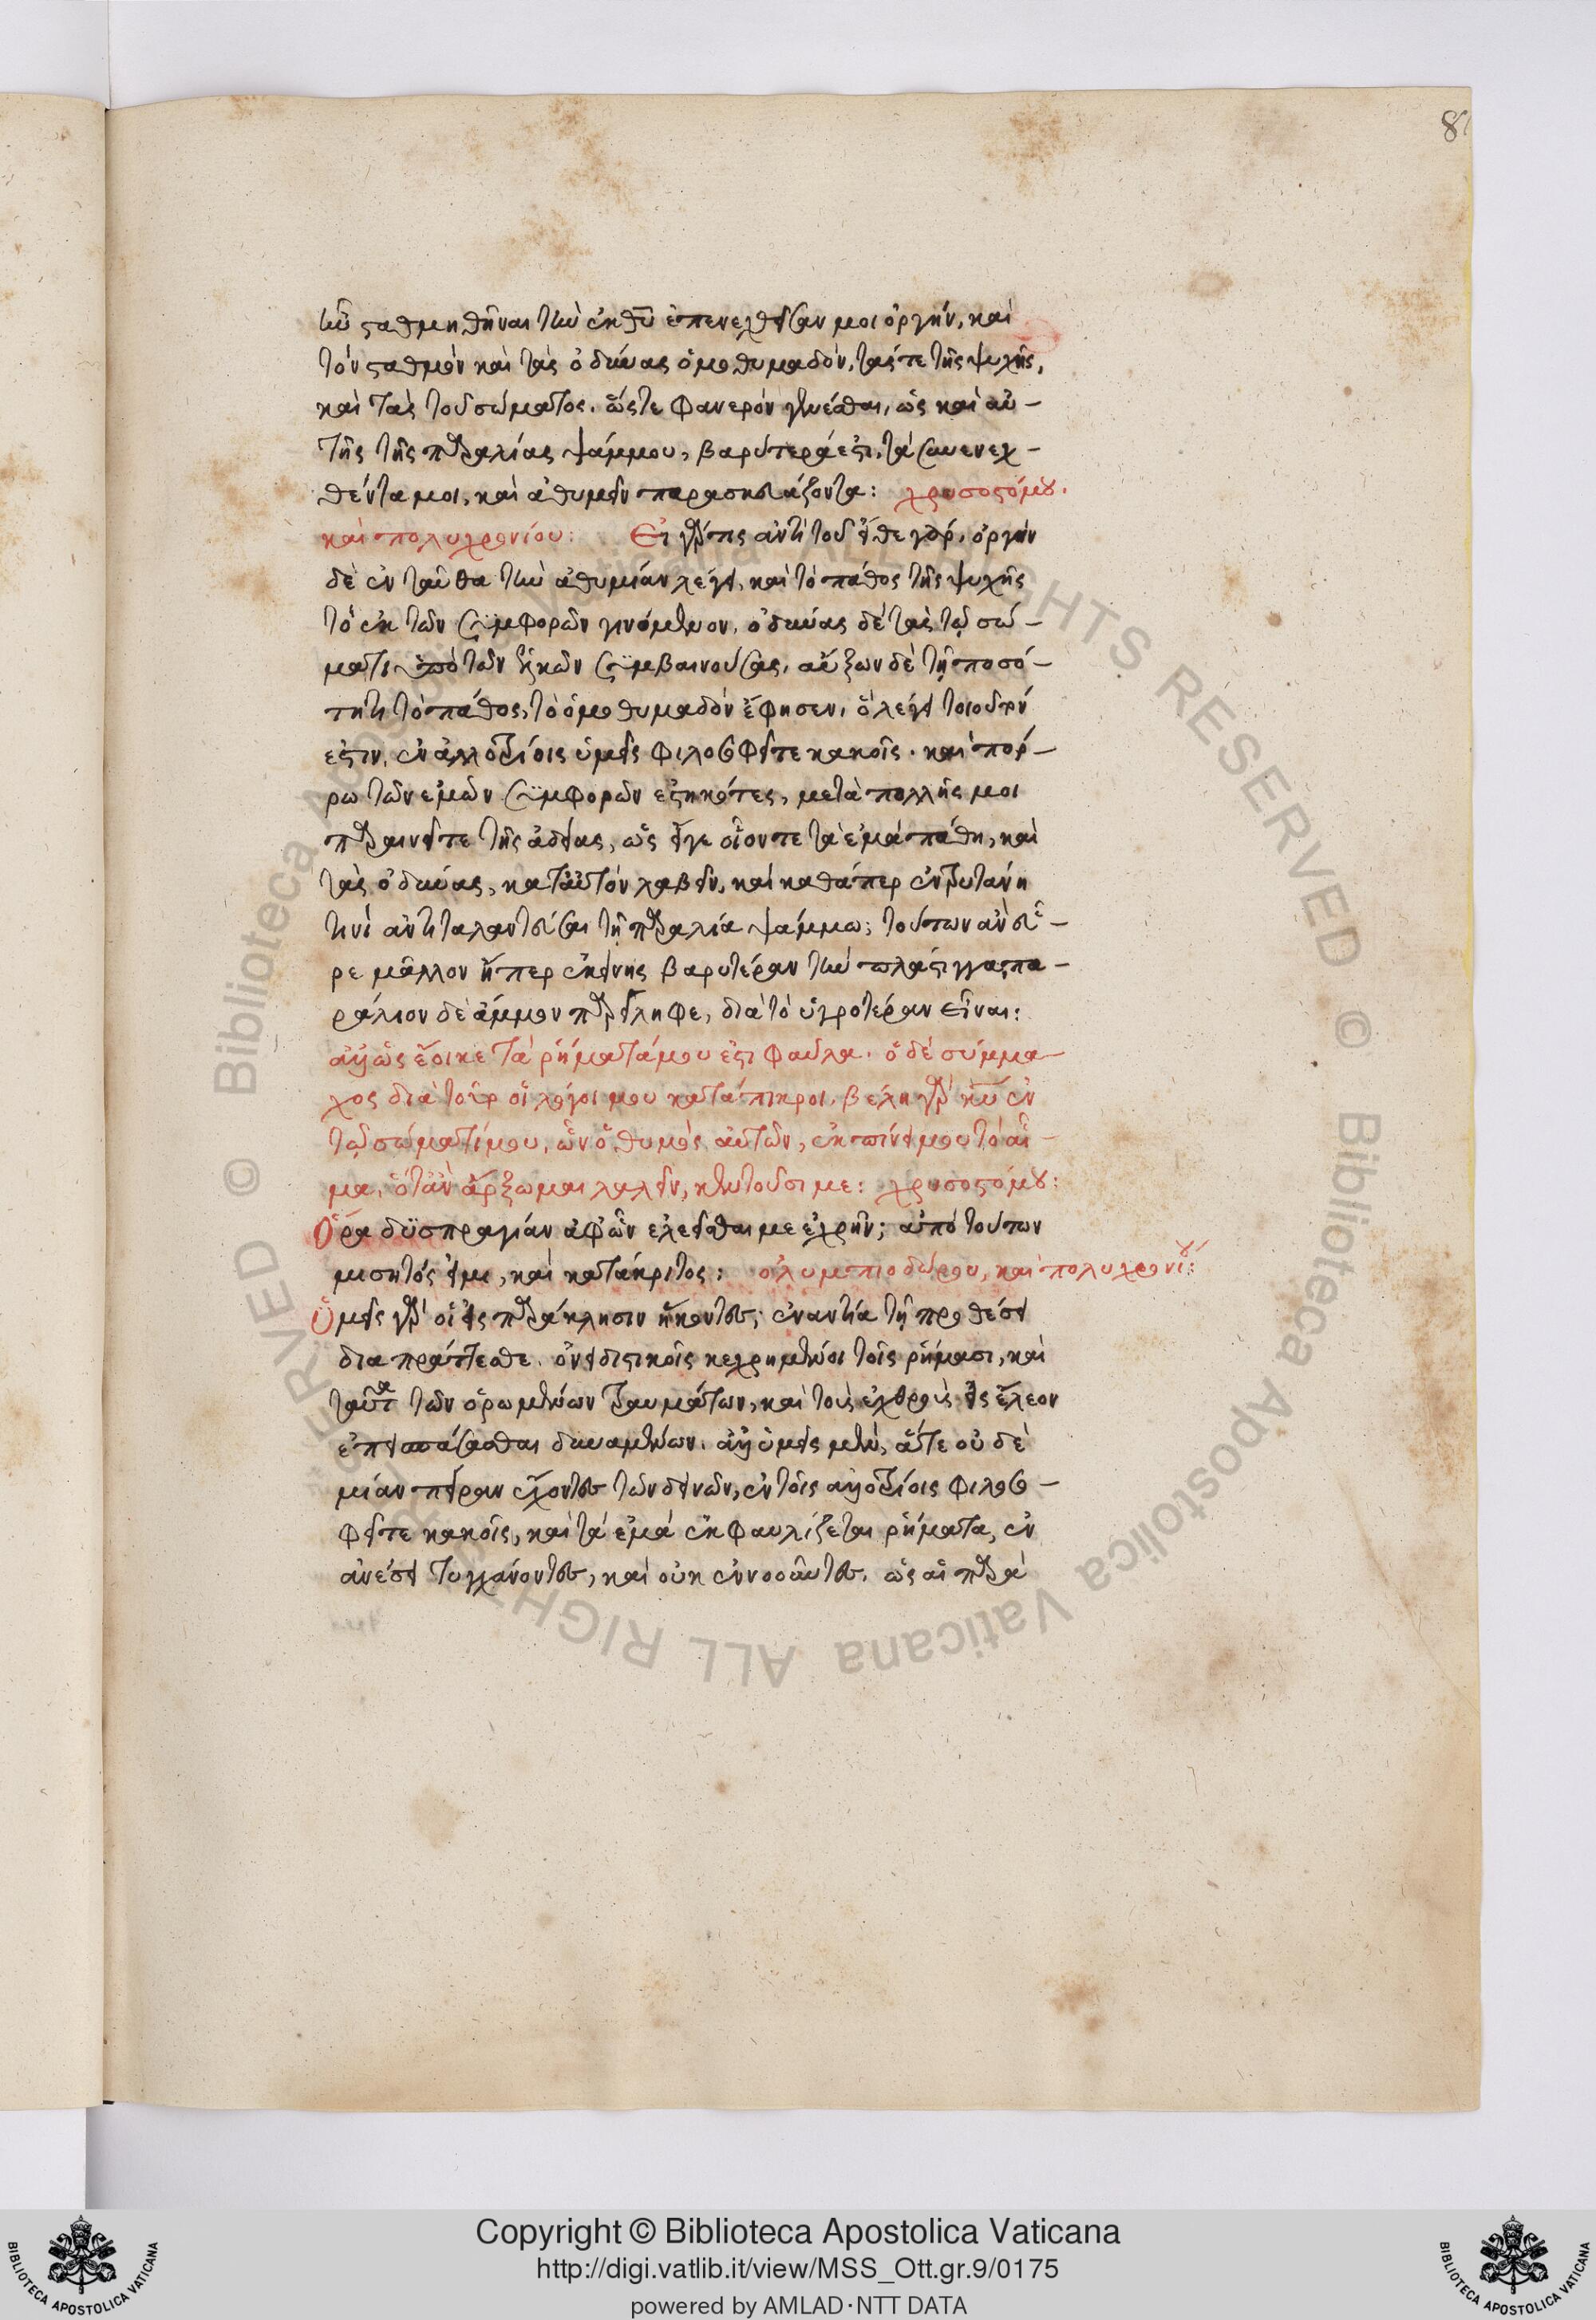 8
ἦν σταθμηθῆναι τὴν ἐκ θυ ἐπενεχθεῖσαν μοι ὀργήν, καὶ
τὸν σταθμὸν καὶ τὰς ὀδύνας ὁμοθυμαδόν, τάς τε τῆς ψυχῆς,
καὶ τὰς τοῦ σώματος. ὥστε φανερὸν γενέσθαι, ὡς καὶ αὐ-
τῆς τῆς παραλίας ψάμμου, βαρύτερά ἐστι, τὰ συνενεχ-
θέντα μοι, καὶ ἀθυμεῖν παρασκευάζοντα: χρυσοστόμου.
καὶ πολυχρονίου: Εἰ γάρ τις ἀντὶ τοῦ εἴθε γάρ, ὀργὴν
δὲ ἐνταῦθα τὴν ἀθυμίαν λέγει, καὶ τὸ πάθος τῆς ψυχῆς
τὸ ἐκ τῶν συμφορῶν γινόμενον, ὀδύνας δὲ τὰς τῷ σώ-
ματι ὑπὸ τῶν ἑλκῶν συμβαινούσας, αὔξων δὲ τῇ ποσό-
τητι τὸ πάθος, τὸ ὁμοθυμαδὸν ἔφησεν, ὃ λέγει τοιοῦτόν
ἐστιν, ἐν ἀλλοτρίοις ὑμεῖς φιλοσοφεῖτε κακοῖς. καὶ πόρ-
ρω τῶν ἐμῶν συμφορῶν ἑστηκότες, μετὰ πολλῆς μοι
παραινεῖτε τῆς ἀδείας, ὡς εἴγε οἷόν τε τὰ ἐμὰ πάθη, καὶ
τὰς ὀδύνας, κατ' αὐτὸν λαβεῖν, καὶ καθάπερ ἐν τρυτάνη
τινὶ ἀντιταλαντεῦσαι τῇ παραλία ψάμμω; τούτων ἂν εὗ-
ρε μᾶλλον ἤπερ ἐκείνης βαρυτέραν τὴν πλάστιγγα, πα-
ράλιον δὲ ἄμμον παρείληφε, διὰ τὸ ὑγροτέραν εἶναι:
ἀλλ' ὡς ἔοικε τὰ ῥήματά μου ἐστι φαῦλα. ὁ δὲ σύμμα-
χος διὰ τοῦτο οἱ λόγοι μου κατάπικροι, βέλη γὰρ κυ ἐν
τῷ σώματί μου, ὧν ὁ θυμὸς αὐτῶν, ἐκπίνει μου τὸ αἷ-
μα, ὅταν ἄρξωμαι λαλεῖν, κεντοῦσί με: χρυσοστόμου:
Ὅρα δυσπραγίαν ἀφ' ὧν ἐλεεῖσθαι με ἐχρῆν; ἀπὸ τούτων
μισητός εἰμι, καὶ κατάκριτος: ὀλυμπιοδώρου, καὶ πολυχρονίου:
Ὑμεῖς γὰρ οἱ εἰς παράκλησιν ἥκοντες, ἐναντία τῇ προθέσει
διαπράττεσθε. ὀνειδιστικοῖς κεχρημένοι τοῖς ῥήμασι, καὶ
ταῦτα τῶν ὁρωμένων τραυμάτων, καὶ τοὺς ἐχθροὺς εἰς ἔλεον
ἐπισπάσασθαι δυναμένων. ἀλλ' ὑμεῖς μὲν, ἅτε οὐδε
μίαν πεῖραν ἔχοντες τῶν δεινῶν, ἐν τοῖς ἀλλοτρίοις φιλοσο-
φεῖτε κακοῖς, καὶ τὰ ἐμὰ ἐκφαυλίζεται ῥήματα, ἐν
ἀνέσει τυγχάνοντες, καὶ οὐκ ἐννοοῦντες, ὡς αἱ παρὰ
Copyright © Biblioteca Apostolica Vaticana
http://digi.vatlib.it/view/MSS_Ott.gr.9/0175
powered by AMLAD·NTT DATA